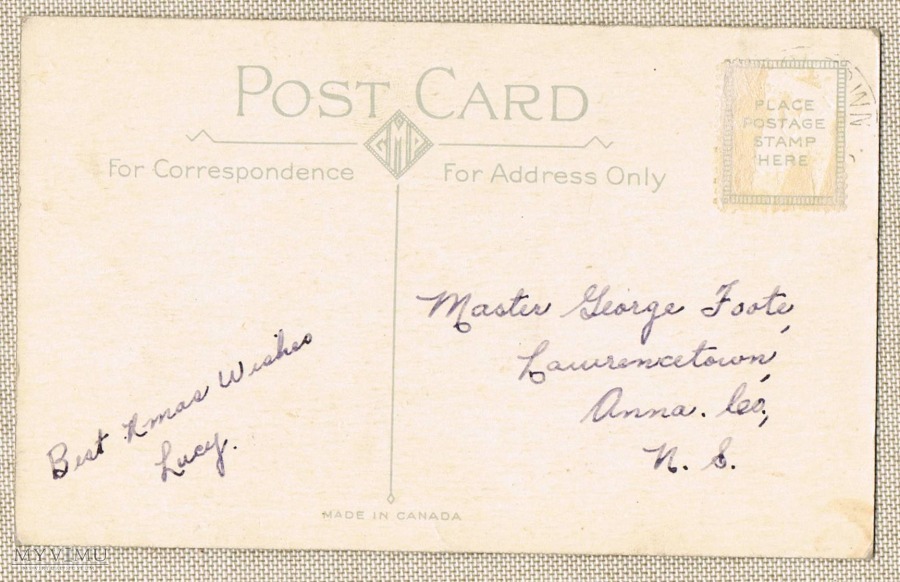 POST CARD
For Correspondence
For Address Only
PLACE
POSTAGE
STAMP
HERE
Best Xmas Wishes
Lucy.
Master George Foote,
Lawrencetown,
Anna. Co,
N. S.
MADE IN CANADA
MYVIMU